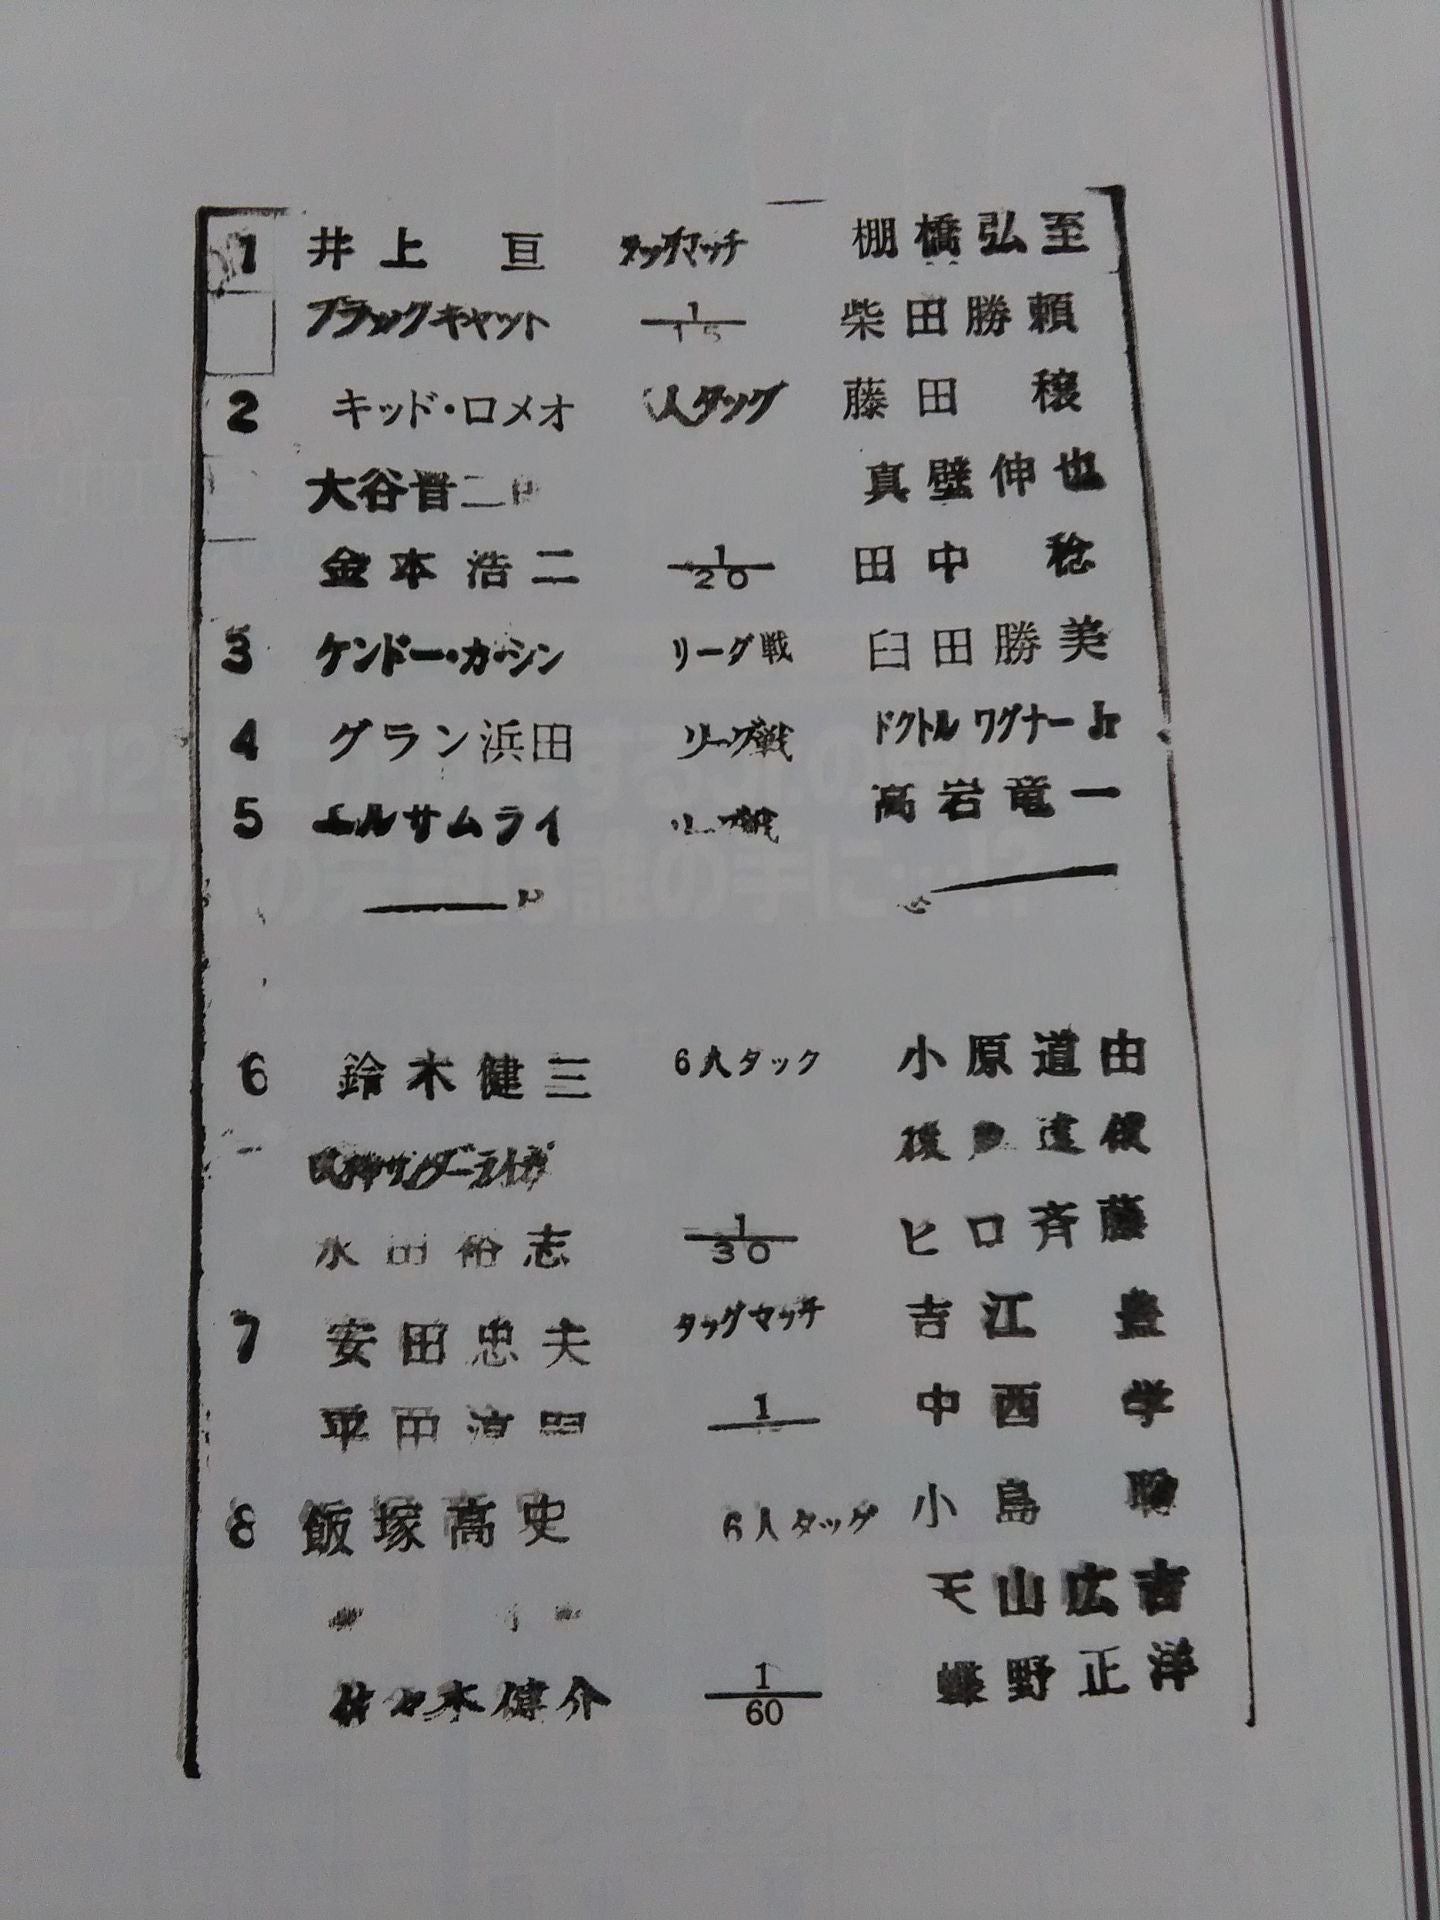 1 井上 亘 タッグマッチ 棚橋弘至
ブラックキャット 1/15 柴田勝頼
2 キッド・ロメオ 人タッグ 藤田 穣
大谷晋二 真壁伸也
金本浩二 1/20 田中 稔
3 ケンドー・カ・シン リーグ戦 臼田勝美
4 グラン浜田 リーグ戦 ドクトル ワグナー Jr
5 エルサムライ リーグ戦 高岩竜一
6 鈴木健三 6人タック 小原道由
獣神サンダーライガ 後藤達俊
永田裕志 1/30 ヒロ斉藤
7 安田忠夫 タッグマッチ 吉江 豊
平田淳 1 中西 学
8 飯塚高史 6人タッグ 小島 聡
天山広吉
佐々木健介 1/60 蝶野正洋